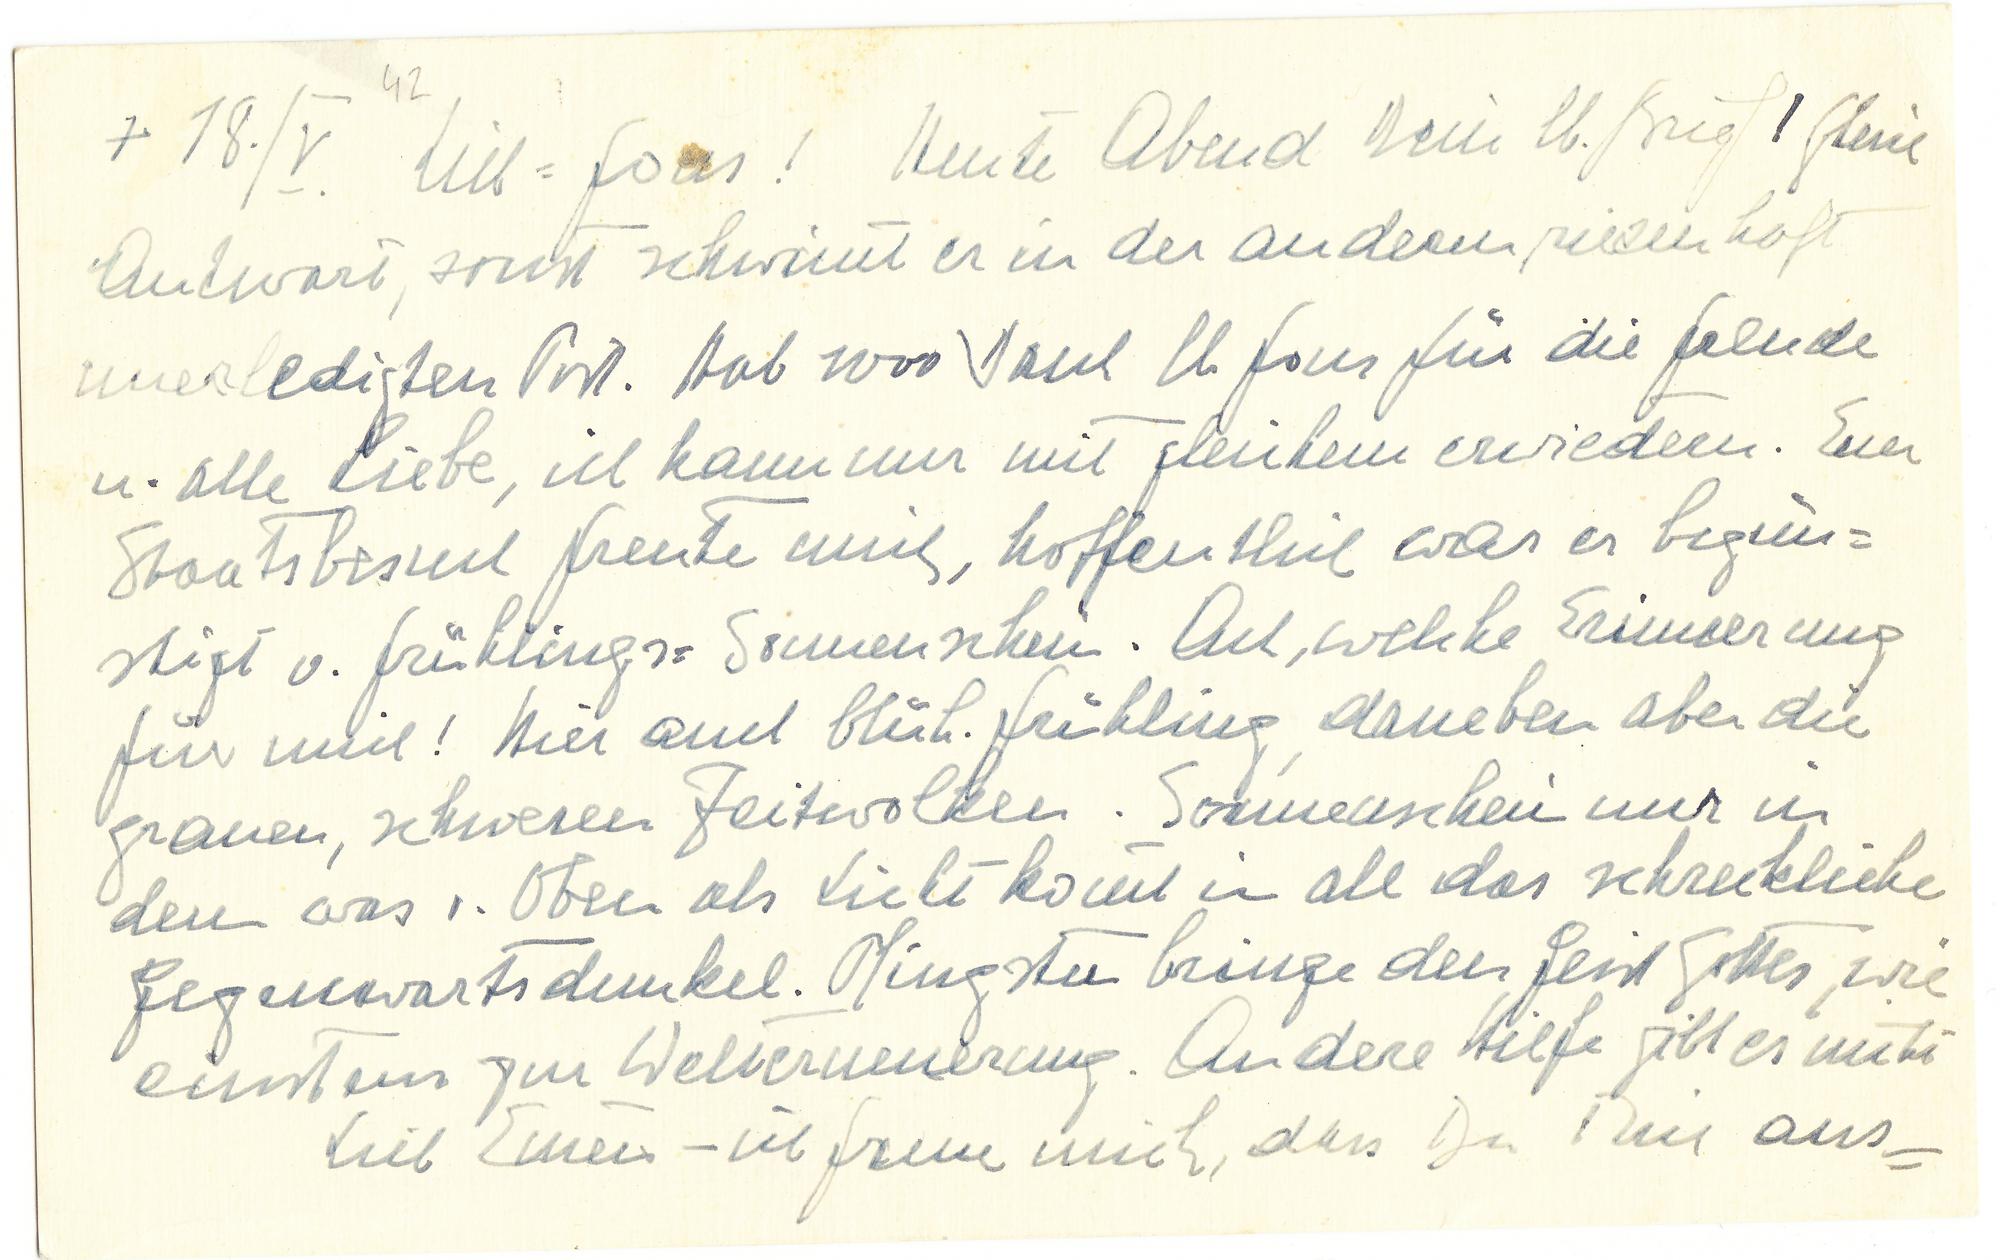 + 18./V. 42 Lieb=fons! Heute Abend Dein lb. Brief! Gleich
Antwort, sonst schwimt er in der andern riesenhaft
unerledigten Post. Hab 1000 Dank lb fons für die
u. alle Liebe, ich kann nur mit gleichem erwiedern. Euer
Staatsbesuch freute mich, hoffentlich war er begün=
stigt v. frühlings=Sonnenschein. Ach, welche Erinnerung
für mich! Hier auch blüh. frühling, daneben aber die
grauen, schweren Zeitwolken. Sonnenschein nur in
dem was v. Oben als Licht komt in all das schreckliche
Gegenwartsdunkel. Pfingsten bringe den Geist Gottes, wie
einstens zur Welterneuerung. Andere Hilfe gibt es nicht
Lieb – ich freue mich, dass Du Dich aus=